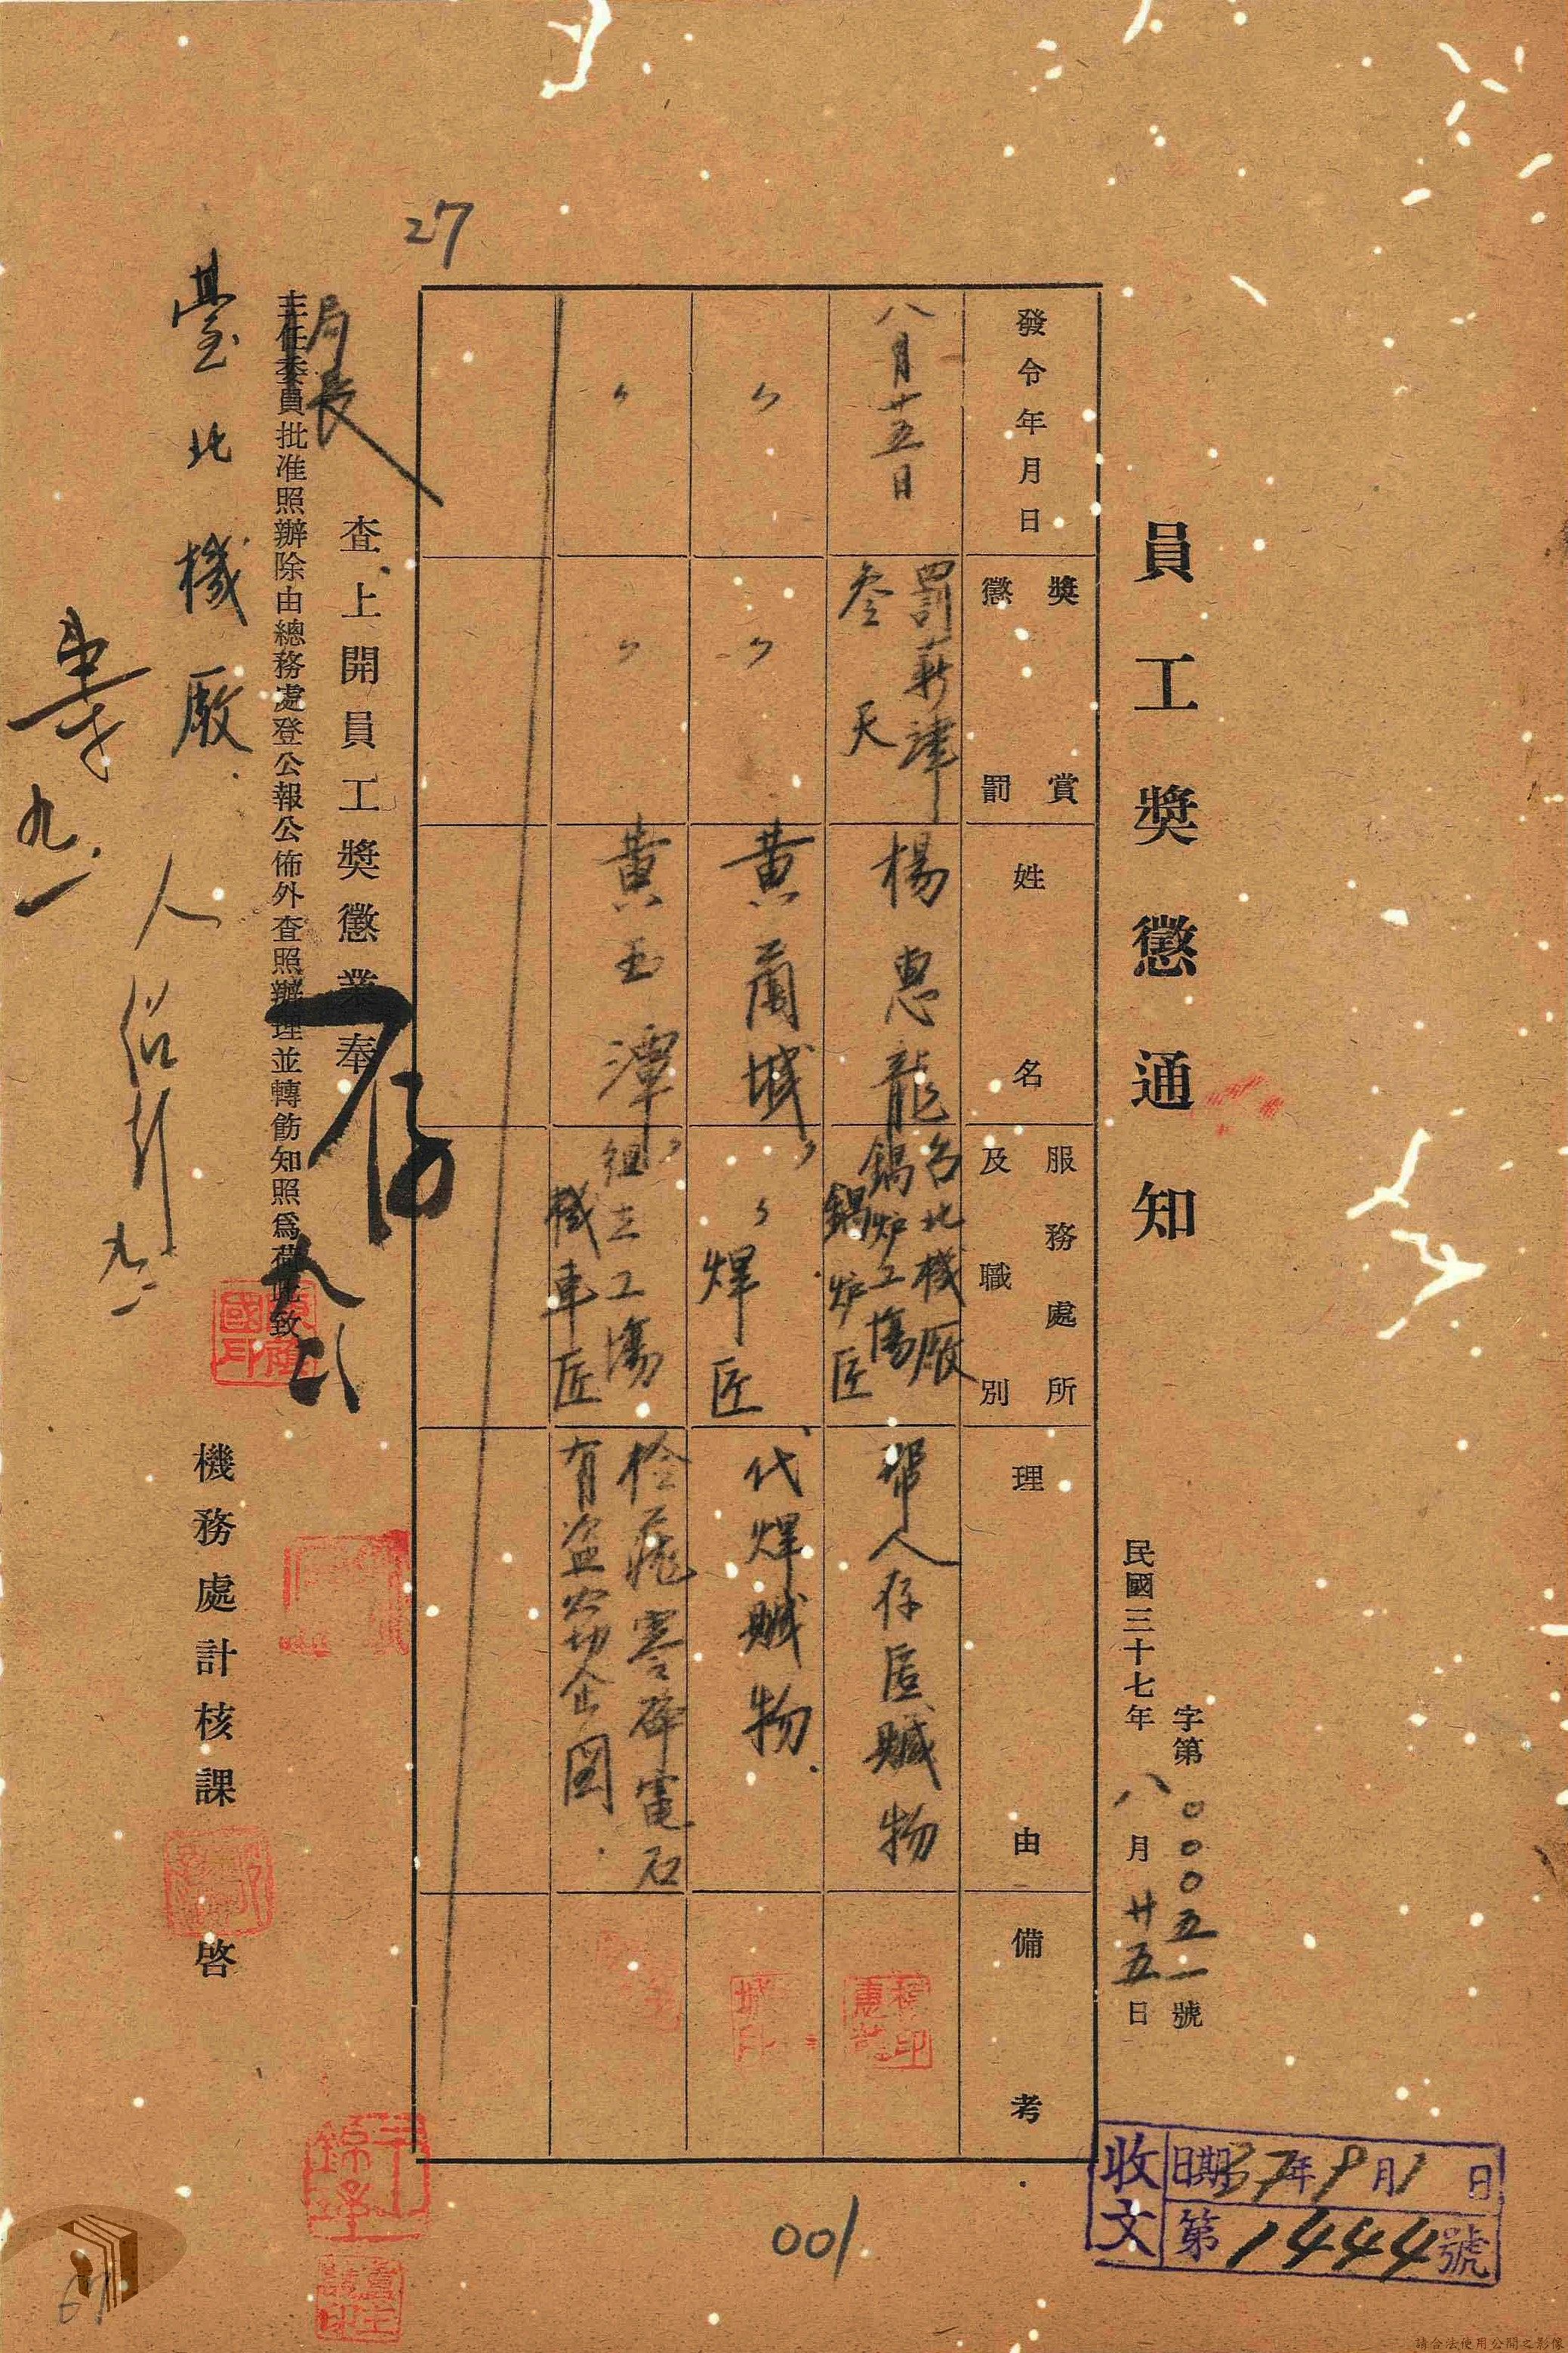 員工獎懲通知
字第〇〇〇五一號
民國三十七年八月廿五日
發令年月日
獎賞
懲罰
姓名
服務處所
及職別
理由
備考
八月十五日
罰薪津
叁天
楊惠龍
台北機廠
鍋炉工場
鍋炉匠
帮人存匿贓物
〃
〃
黄爾城
〃
〃焊匠
代焊贓物
〃
〃
黄玉潭
〃
組立工場
機車匠
有盗窃企圖
查上開員工獎懲業奉
局長
主任委員批准照辦除由總務處登公報公佈外查照辦理並轉飭知照爲荷此致
臺北機廠
機務處計核課 啓
存
九
人
九.一
27
001
收文
日期37年9月1日
第1444號
請合法使用公開之影像